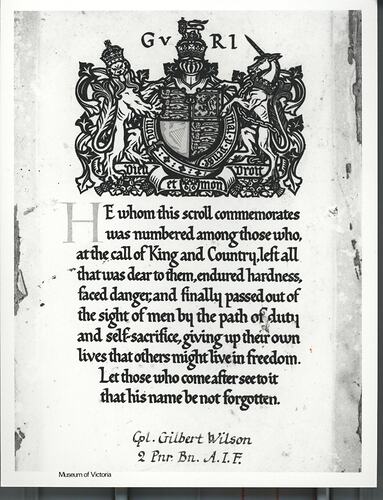 GVRI
HE whom this scroll commemorates
was numbered among those who,
at the call of King and Country, left all
that was dear to them, endured hardness,
faced danger, and finally passed out of
the sight of men by the path of duty
and self-sacrifice, giving up their own
lives that others might live in freedom.
Let those who come after see to it
that his name be not forgotten.
Cpl. Gilbert Wilson
2 Pnr. Bn. A.I.F.
Museum of Victoria